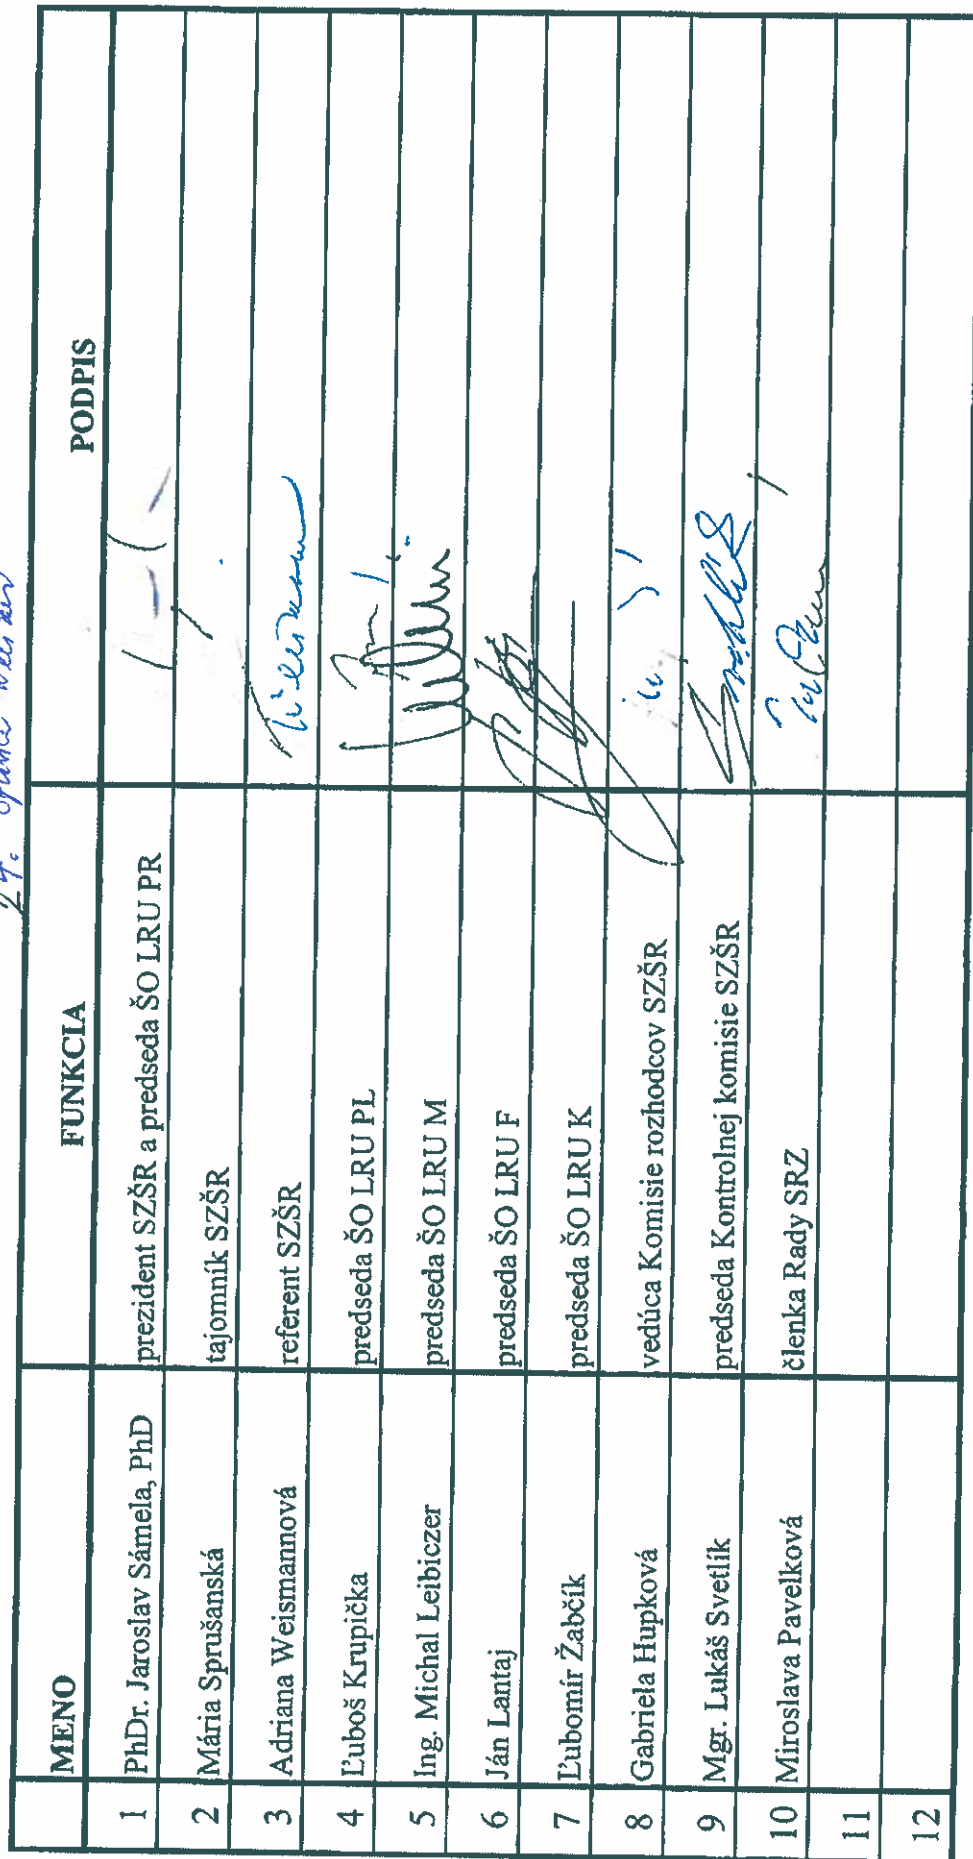 MENO FUNKCIA PODPIS
1 PhDr. Jaroslav Sámela, PhD prezident SZŠR a predseda ŠO LRU PR
2 Mária Sprušanská tajomník SZŠR
3 Adriana Weismannová referent SZŠR
4 Ľuboš Krupička predseda ŠO LRU PL
5 Ing. Michal Leibiczer predseda ŠO LRU M
6 Ján Lantaj predseda ŠO LRU F
7 Ľubomír Žabčík predseda ŠO LRU K
8 Gabriela Hupková vedúca Komisie rozhodcov SZŠR
9 Mgr. Lukáš Svetlík predseda Kontrolnej komisie SZŠR
10 Miroslava Pavelková členka Rady SRZ
11
12